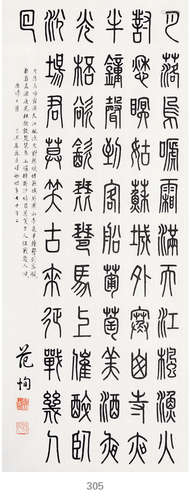 月落烏啼霜滿天江楓漁火
對愁眠姑蘇城外寒山寺夜
半鐘聲到客船葡萄美酒夜
光杯欲飲琵琶馬上催醉臥
沙場君莫笑古來征戰幾人
回
范恂
305